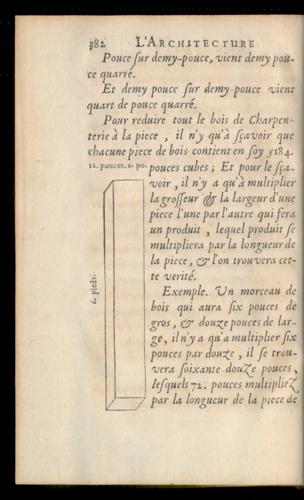 382 L'ARCHITECTURE
Pouce sur demy-pouce, vient demy pou-
ce quarré.
Et demy pouce sur demy-pouce vient
quart de pouce quarré.
Pour reduire tout le bois de Charpen-
terie à la piece, il n'y qu'à sçavoir que
chacune piece de bois contient en soy 5184.
12. pouces. 6. po.
pouces cubes; Et pour le sça-
voir, il n'y a qu'à multiplier
la grosseur & la largeur d'une
piece l'une par l'autre qui fera
un produit, lequel produit se
multipliera par la longueur de
la piece, & l'on trouvera cet-
te verité.
6. pieds.
Exemple. Un morceau de
bois qui aura six pouces de
gros, & douze pouces de lar-
ge, il n'y a qu'à multiplier six
pouces par douze, il se trou-
vera soixante-douze pouces,
lesquels 72. pouces multipliez
par la longueur de la piece de